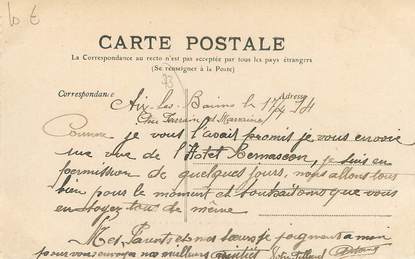 CARTE POSTALE
La Correspondance au recto n'est pas acceptée par tous les pays étrangers
(Se renseigner à la Poste)
73
Correspondance
Adresse
Aix-les-Bains le 17/4 14
Cher Parrain et Marraine
Comme je vous l'avait promis je vous envoie
une vue de l'Hotel Bernascon, je suis en
permission de quelques jours, nous allons tous
bien pour le moment et souhaitons que vous
en soyez tous de même
Mes Parents et nos sœurs se joignent a moi
pour vous envoyer nos meilleurs amitiés Votre Filleul